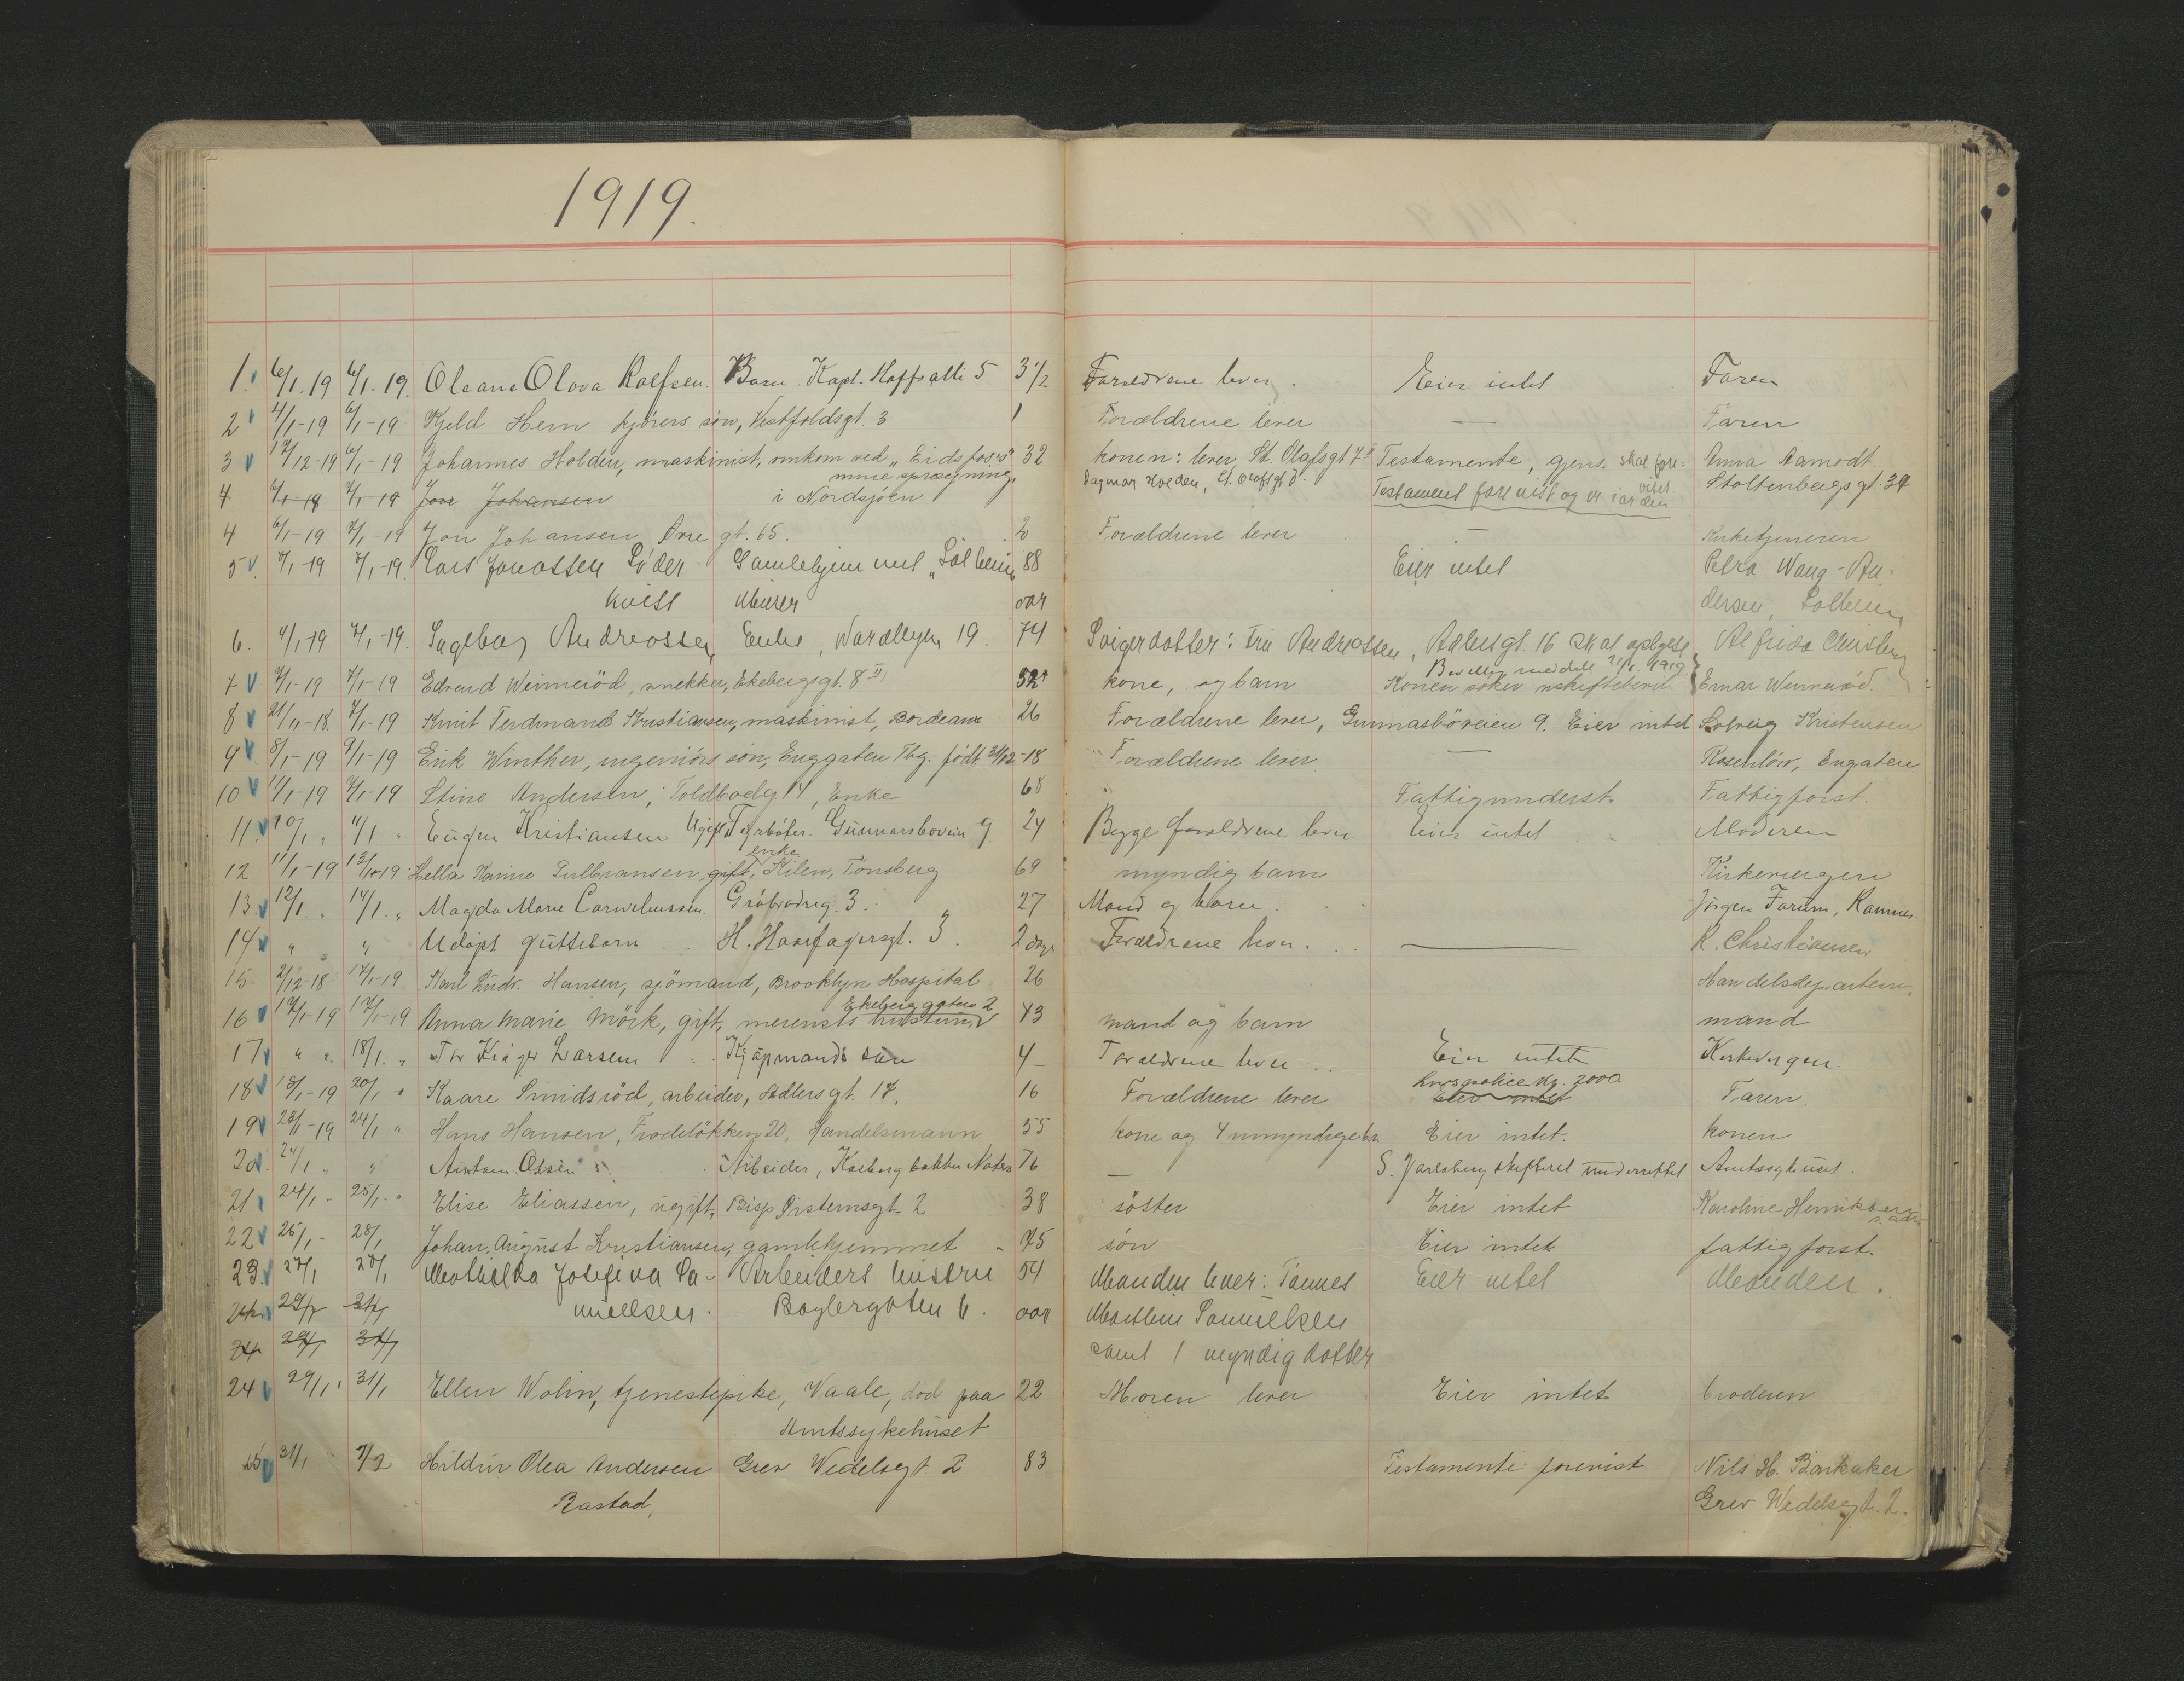 1919.
1. 6/1.19 6/1.19. Oleane Olava Rolfsen. Barn. Kapt. Hoffs alle 5 3 1/2 Foreldrene lever. Eier intet Faren
2 4/1-19 6/1-19 Kjeld Hem kjörers sön, Vestfoldsgt. 3 1 Forældrene lever — Faren
3 17/12-19 6/1-19 Johannes Holden, maskinist, omkom ved "Eidsfoss" 32 konen: lever St. Olafsgt 7 Testamente, gjens. skal fore- Anna Aamodt
minesprægning, Dagmar Holden, St. Olafsgt 7. vises Stoltenbergs gt. 34
4 6/1-19 7/1-19 Jon Johansen i Nordsjöen Testament forevist og er i orden
4 6/1-19 7/1-19 Jon Johansen Örre gt. 65. 2 Forældrene lever — Kirketjeneren
5 7/1-19 7/1-19. Lars Jonassen Söder Gamlehjemmet "Solheim" 88 Eier intet Petra Wang-An-
kvist Murer aar dersen, Solheim
6. 4/1-19 7/1-19. Ingeborg Andreassen Enke, 19. 74 Svigerdatter: Fru Andreassen, 16 skal opgive Alfrida
Bevilling meddelt 21/1. 1919
7 7/1-19 7/1-19 Edvard Weimeröd, snekker, Ekebergsgt. 8 II 52 kone, og barn Konen söker uskiftebevil. Einar Wenneröd.
8 21/11-18. 7/1-19 Knut Ferdinand Kristiansen, maskinist, Bordeaux 26 Forældrene lever, Gunnarsböveien 9. Eier intet Solveig Kristensen
9 8/1-19 9/1-19 Erik Winther, ingeniörs sön, Enggaten Tbg. födt 31/12-18 Forældrene lever — Rosenlöw, Engaten
10 1/1-19 9/1-19 Stine Andersen, Toldbodg 14, Enke 68 Fattigunderst. Fattigforst.
11. 10/1 " 11/1 " Eugen Kristiansen Ugift Gunnarsboveien 9 24 Begge foreldrene lever Eier intet Moderen
enke
12 11/1-19 13/1-19 Hella Karine Gulbransen, gift, Kilen, Tönsberg 69 myndig barn Kirkevergen
13. 12/1. " 14/1. " Magda Marie Corneliussen. Gröbradveg. 3. 27 Mand og barn. Jörgen Farum, Ramnes.
14 " " " Udöpt guttebarn H. Haarfagersgt. 3. 2 dage Foreldrene lever. — K. Christiansen
15 2/12-18 17/1-19. Karl Ludv. Hansen, sjömand, Brooklyn Hospital 26 Handelsdepartem.
Ekeberggaten 2
16 17/1-19 17/1-19 Anna Marie Mörk, gift, hustru 43 mand og barn mand
17 " " 18/1. " Tor Kröger Larsen Kjöpmands sön 4 Foreldrene lever Eier intet Kirkevergen.
Livspolice kr. 2000
18 18/1-19 20/1 " Kaare Smidsröd, arbeider, Stadlersgt. 17. 16 Forældrene lever Eier intet Faren.
19 23/1-19 24/1 " Hans Hansen, Frodelökken 20, Handelsmann 55 kone og 4 umyndige bn. Eier intet. konen
20. 24/1 " " Anton Olsen Arbeider, 76 — S. Jarlsberg skifteret underrettet Amtssykhuset.
21 24/1. " 25/1. " Elise Eliassen, ugift, Bisp Örstensgt. 2 38 söster Eier intet Karoline Henriksen
s. adr.
22 25/1- 28/1 Johan. August Kristiansen, gamlehjemmet 75 sön Eier intet fattigforst.
23. 27/1 28/1 Mathilda Josefina Sa- Arbeiders hustru 54 Manden lever: Tannes Eier intet Manden.
24 29/1 31/1 muelsen. Baglergaten 6. aar Samuelsen
24 29/1 31/1 samt 1 myndig datter
24 29/1. 31/1 Ellen Wolin, tjenestepike, Vaale, död paa 22 Moren lever Eier intet broderen
Amtssykehuset
25 31/1 7/2 Hildur Olea Andersen Grev Wedelsgt. 2 83 Testamente forevist Nils H. Barkaker
Rastad, Grev Wedelsgt. 2.